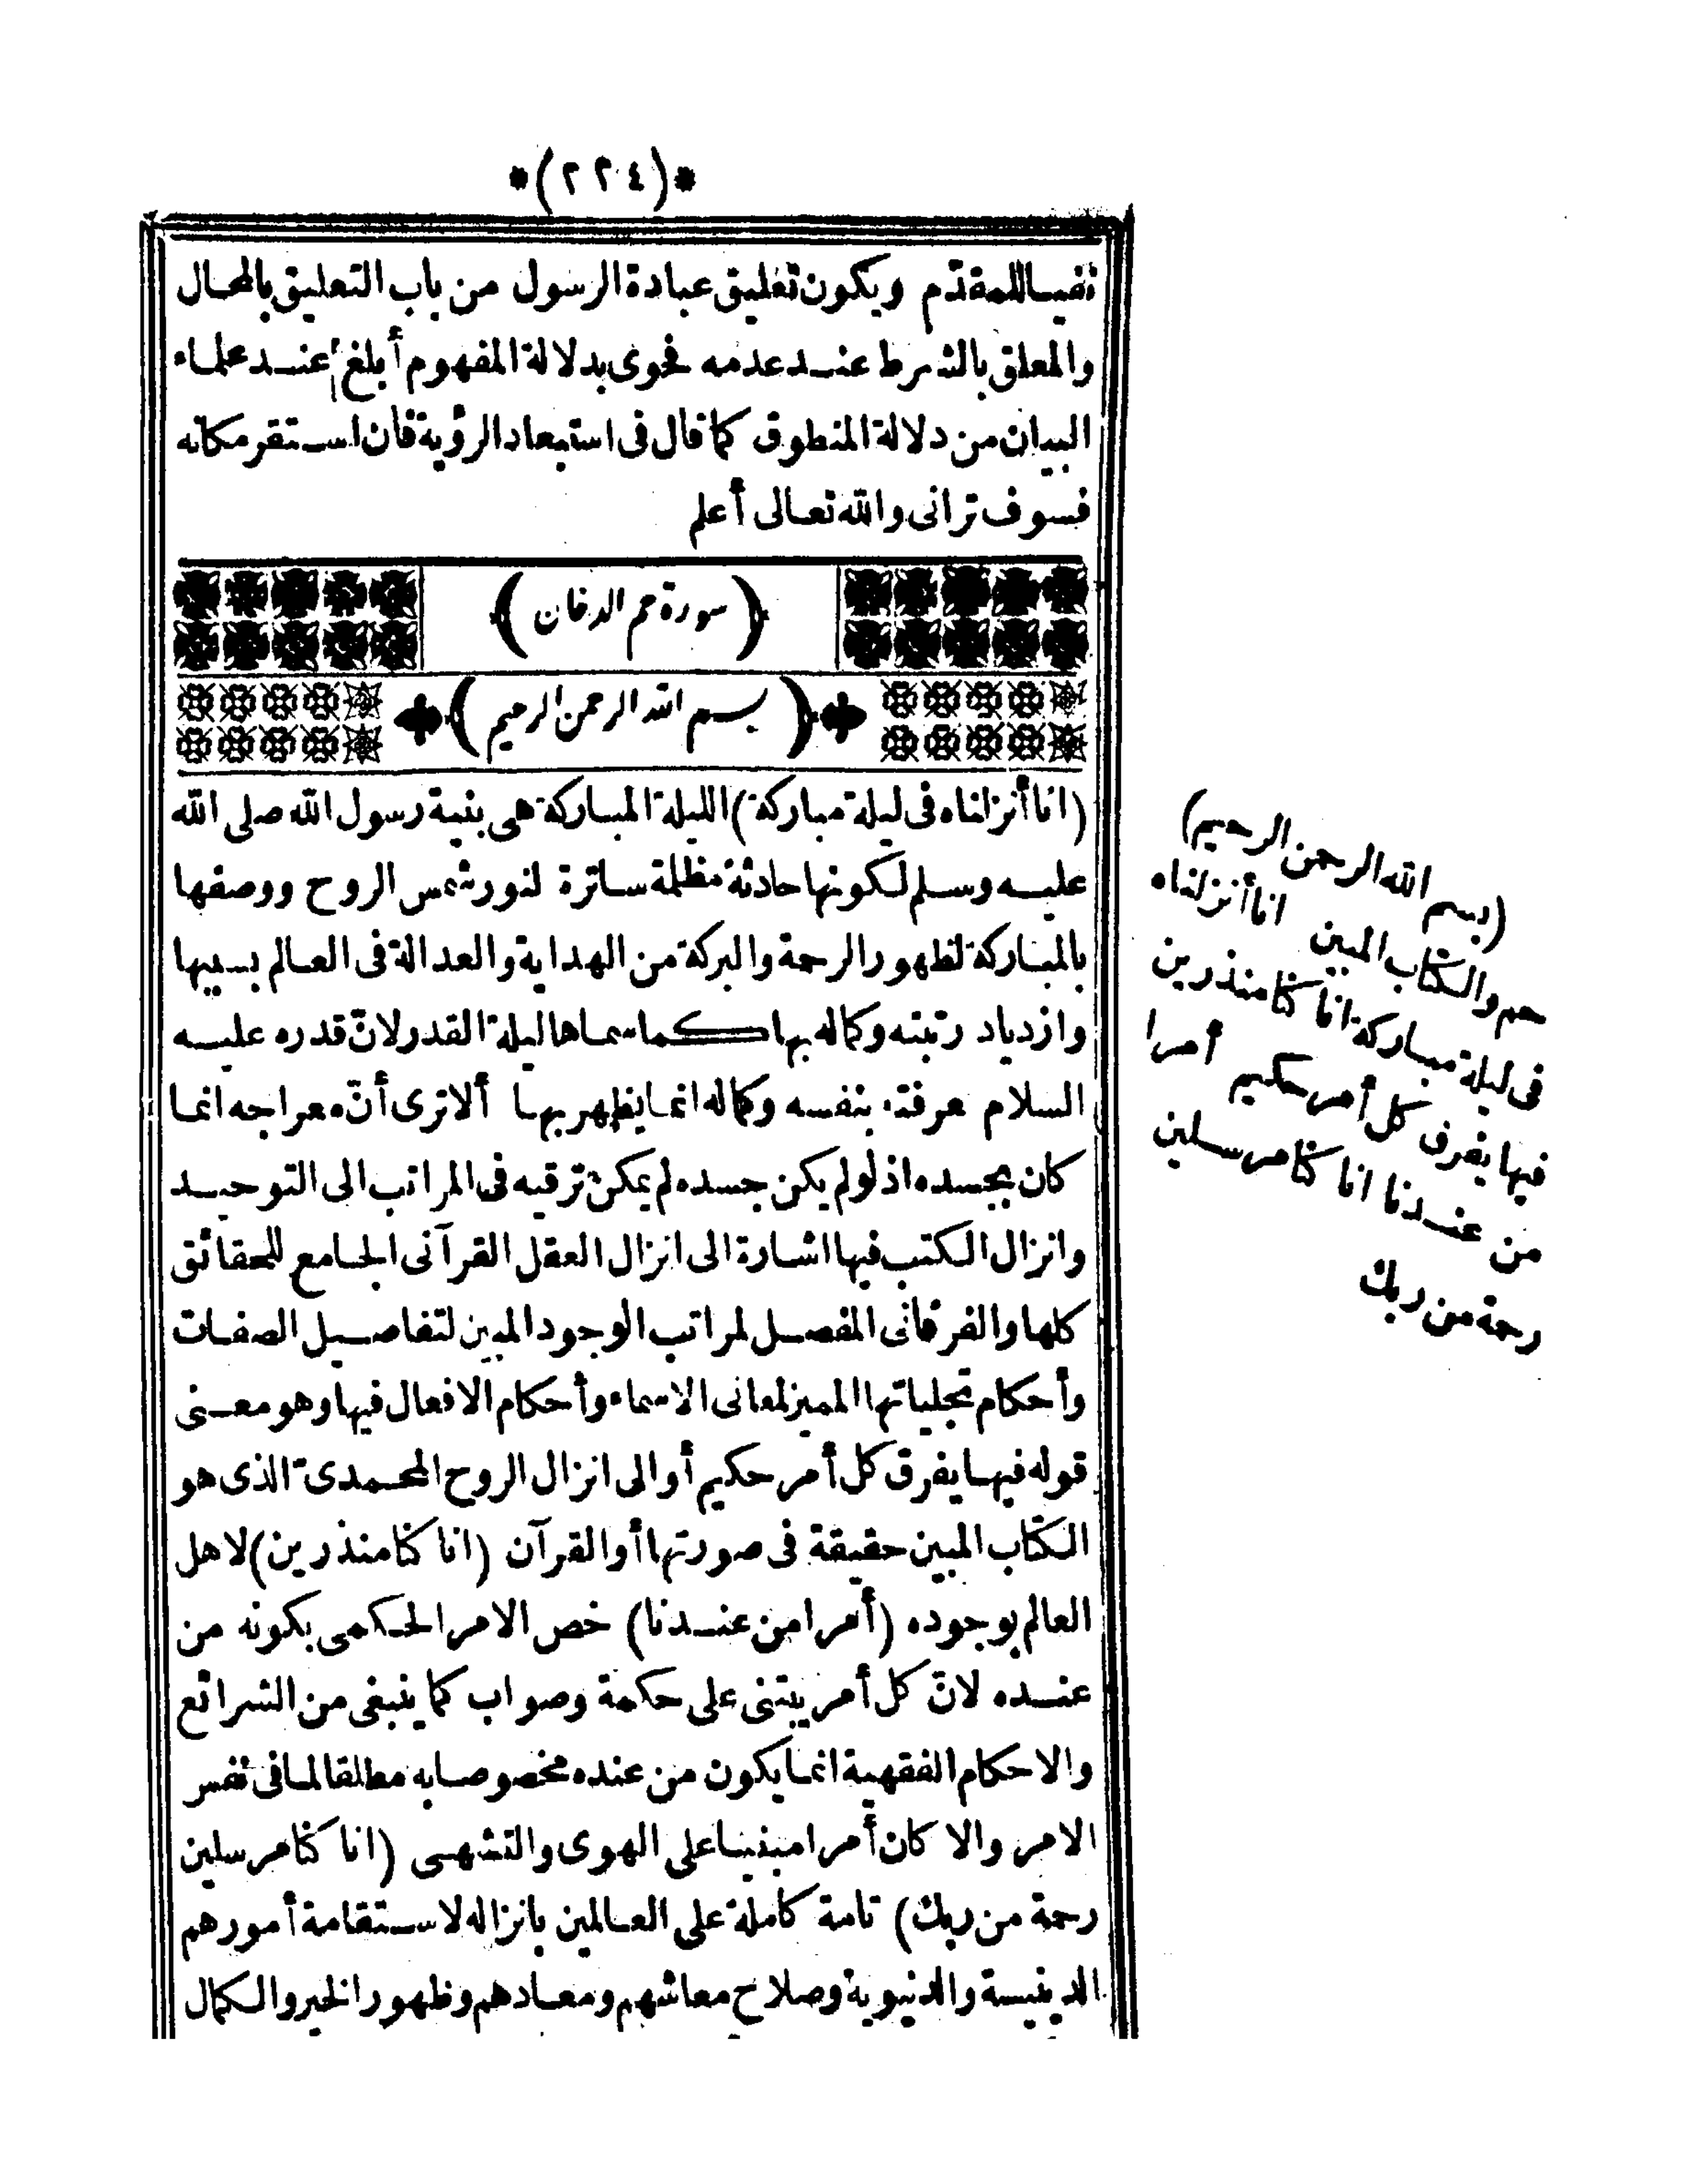 *(٢٢٤)*
نفيا للمقدّم ويكون تعليق عبادة الرسول من باب التعليق بالمحال
والمعلق بالشرط عند عدمه فحوى بدلالة المفهوم أبلغ عند علماء
البيان من دلالة المنطوق كما قال فى استبعاد الرؤية فان استقر مكانه
فسوف ترانى والله تعالى أعلم
(سورة حم الدخان)
(بسم الله الرحمن الرحيم)
(انا أنزلناه فى ليلة مباركة) الليلة المباركة هى بنية رسول الله صلى الله
عليه وسلم لكونها حادثة مظلمة ساترة لنور شمس الروح ووصفها
بالمباركة لظهور الرحمة والبركة من الهداية والعدالة فى العالم بسببها
وازدياد رتبته وكماله بها كما سماها ليلة القدر لانّ قدره عليه
السلام معرفته بنفسه وكماله انما يظهر بها ألا ترى أنّ معراجه انما
كان بجسده اذ لو لم يكن جسده لم يمكن ترقيه فى المراتب الى التوحيد
وانزال الكتب فيها اشارة الى انزال العقل القرآنى الجامع للحقائق
كلها والفرقانى المفصل لمراتب الوجود المبين لتفاصيل الصفات
وأحكام تجلياتها المميز لمعانى الاسماء وأحكام الافعال فيها وهو معنى
قوله فيها يفرق كل أمر حكيم أو الى انزال الروح المحمدىّ الذى هو
الكتاب المبين حقيقة فى صورتها أو القرآن (انا كنا منذرين) لاهل
العالم بوجوده (أمرا من عندنا) خص الامر الحكمى بكونه من
عنده لانّ كل أمر يبتنى على حكمة وصواب كما ينبغى من الشرائع
والاحكام الفقهية انما يكون من عنده مخصوصا به مطلقا لما فى نفس
الامر والا كان أمرا مبنيا على الهوى والتشهى (انا كنا مرسلين
رحمة من ربك) تامة كاملة على العالمين بانزاله لاستقامة أمورهم
الدينية والدنيوية وصلاح معاشهم ومعادهم وظهور الخير والكمال
(بسم الله الرحمن الرحيم)
حم والكتاب المبين انا أنزلناه
فى ليلة مباركة انا كنا منذرين
فيها يفرق كل أمر حكيم أمرا
من عندنا انا كنا مرسلين
رحمة من ربك